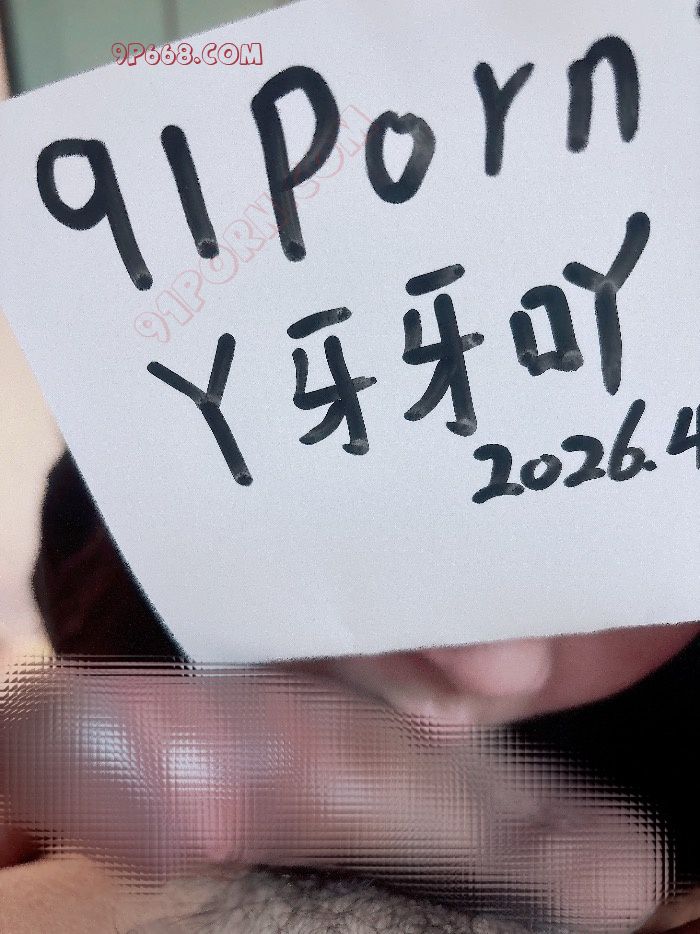 9P668.COM
91Porn
91PORN.COM
丫牙牙吖
2026.4